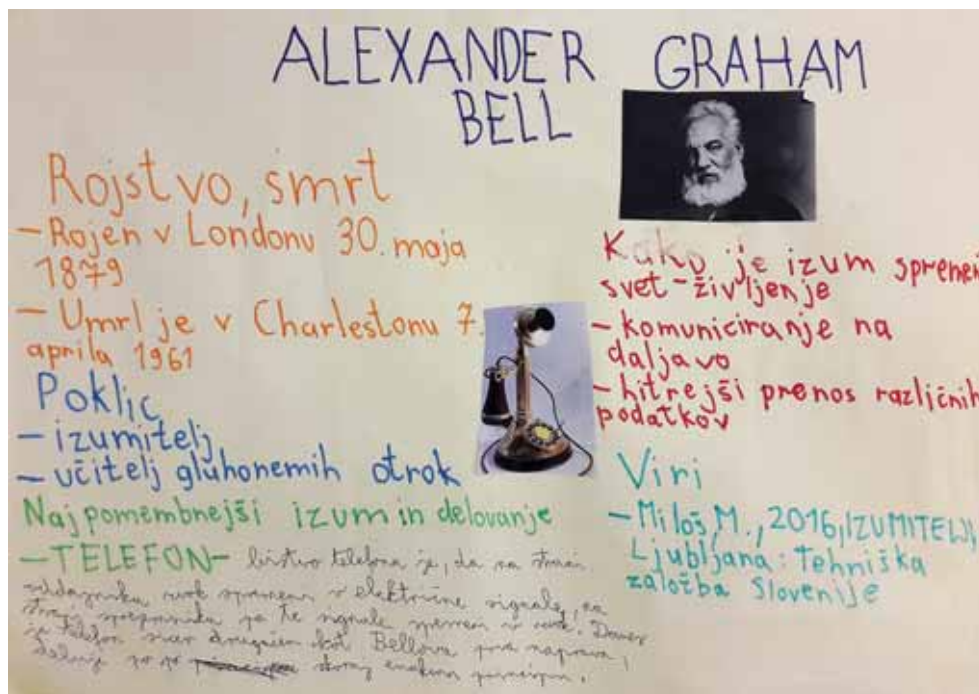 ALEXANDER GRAHAM
BELL
Rojstvo, smrt
- Rojen v Londonu 30. maja
1879
- Umrl je v Charlestonu 7.
aprila 1961
Poklic
- izumitelj
- učitelj gluhonemih otrok
Najpomembnejši izum in delovanje
- TELEFON - bistvo telefona je, da na strani
oddajnika zvok spremeni v električne signale, na
strani sprejemnika pa te signale spremeni v zvok. Danes
je telefon sicer drugačen kot Bellova prva naprava,
deluje pa po skoraj enakem principu.
Kako je izum spremeni
svet - življenje
- komuniciranje na
daljavo
- hitrejši prenos različnih
podatkov
Viri
- Miloš, M., 2016, IZUMITELJI,
Ljubljana: Tehniška
založba Slovenije